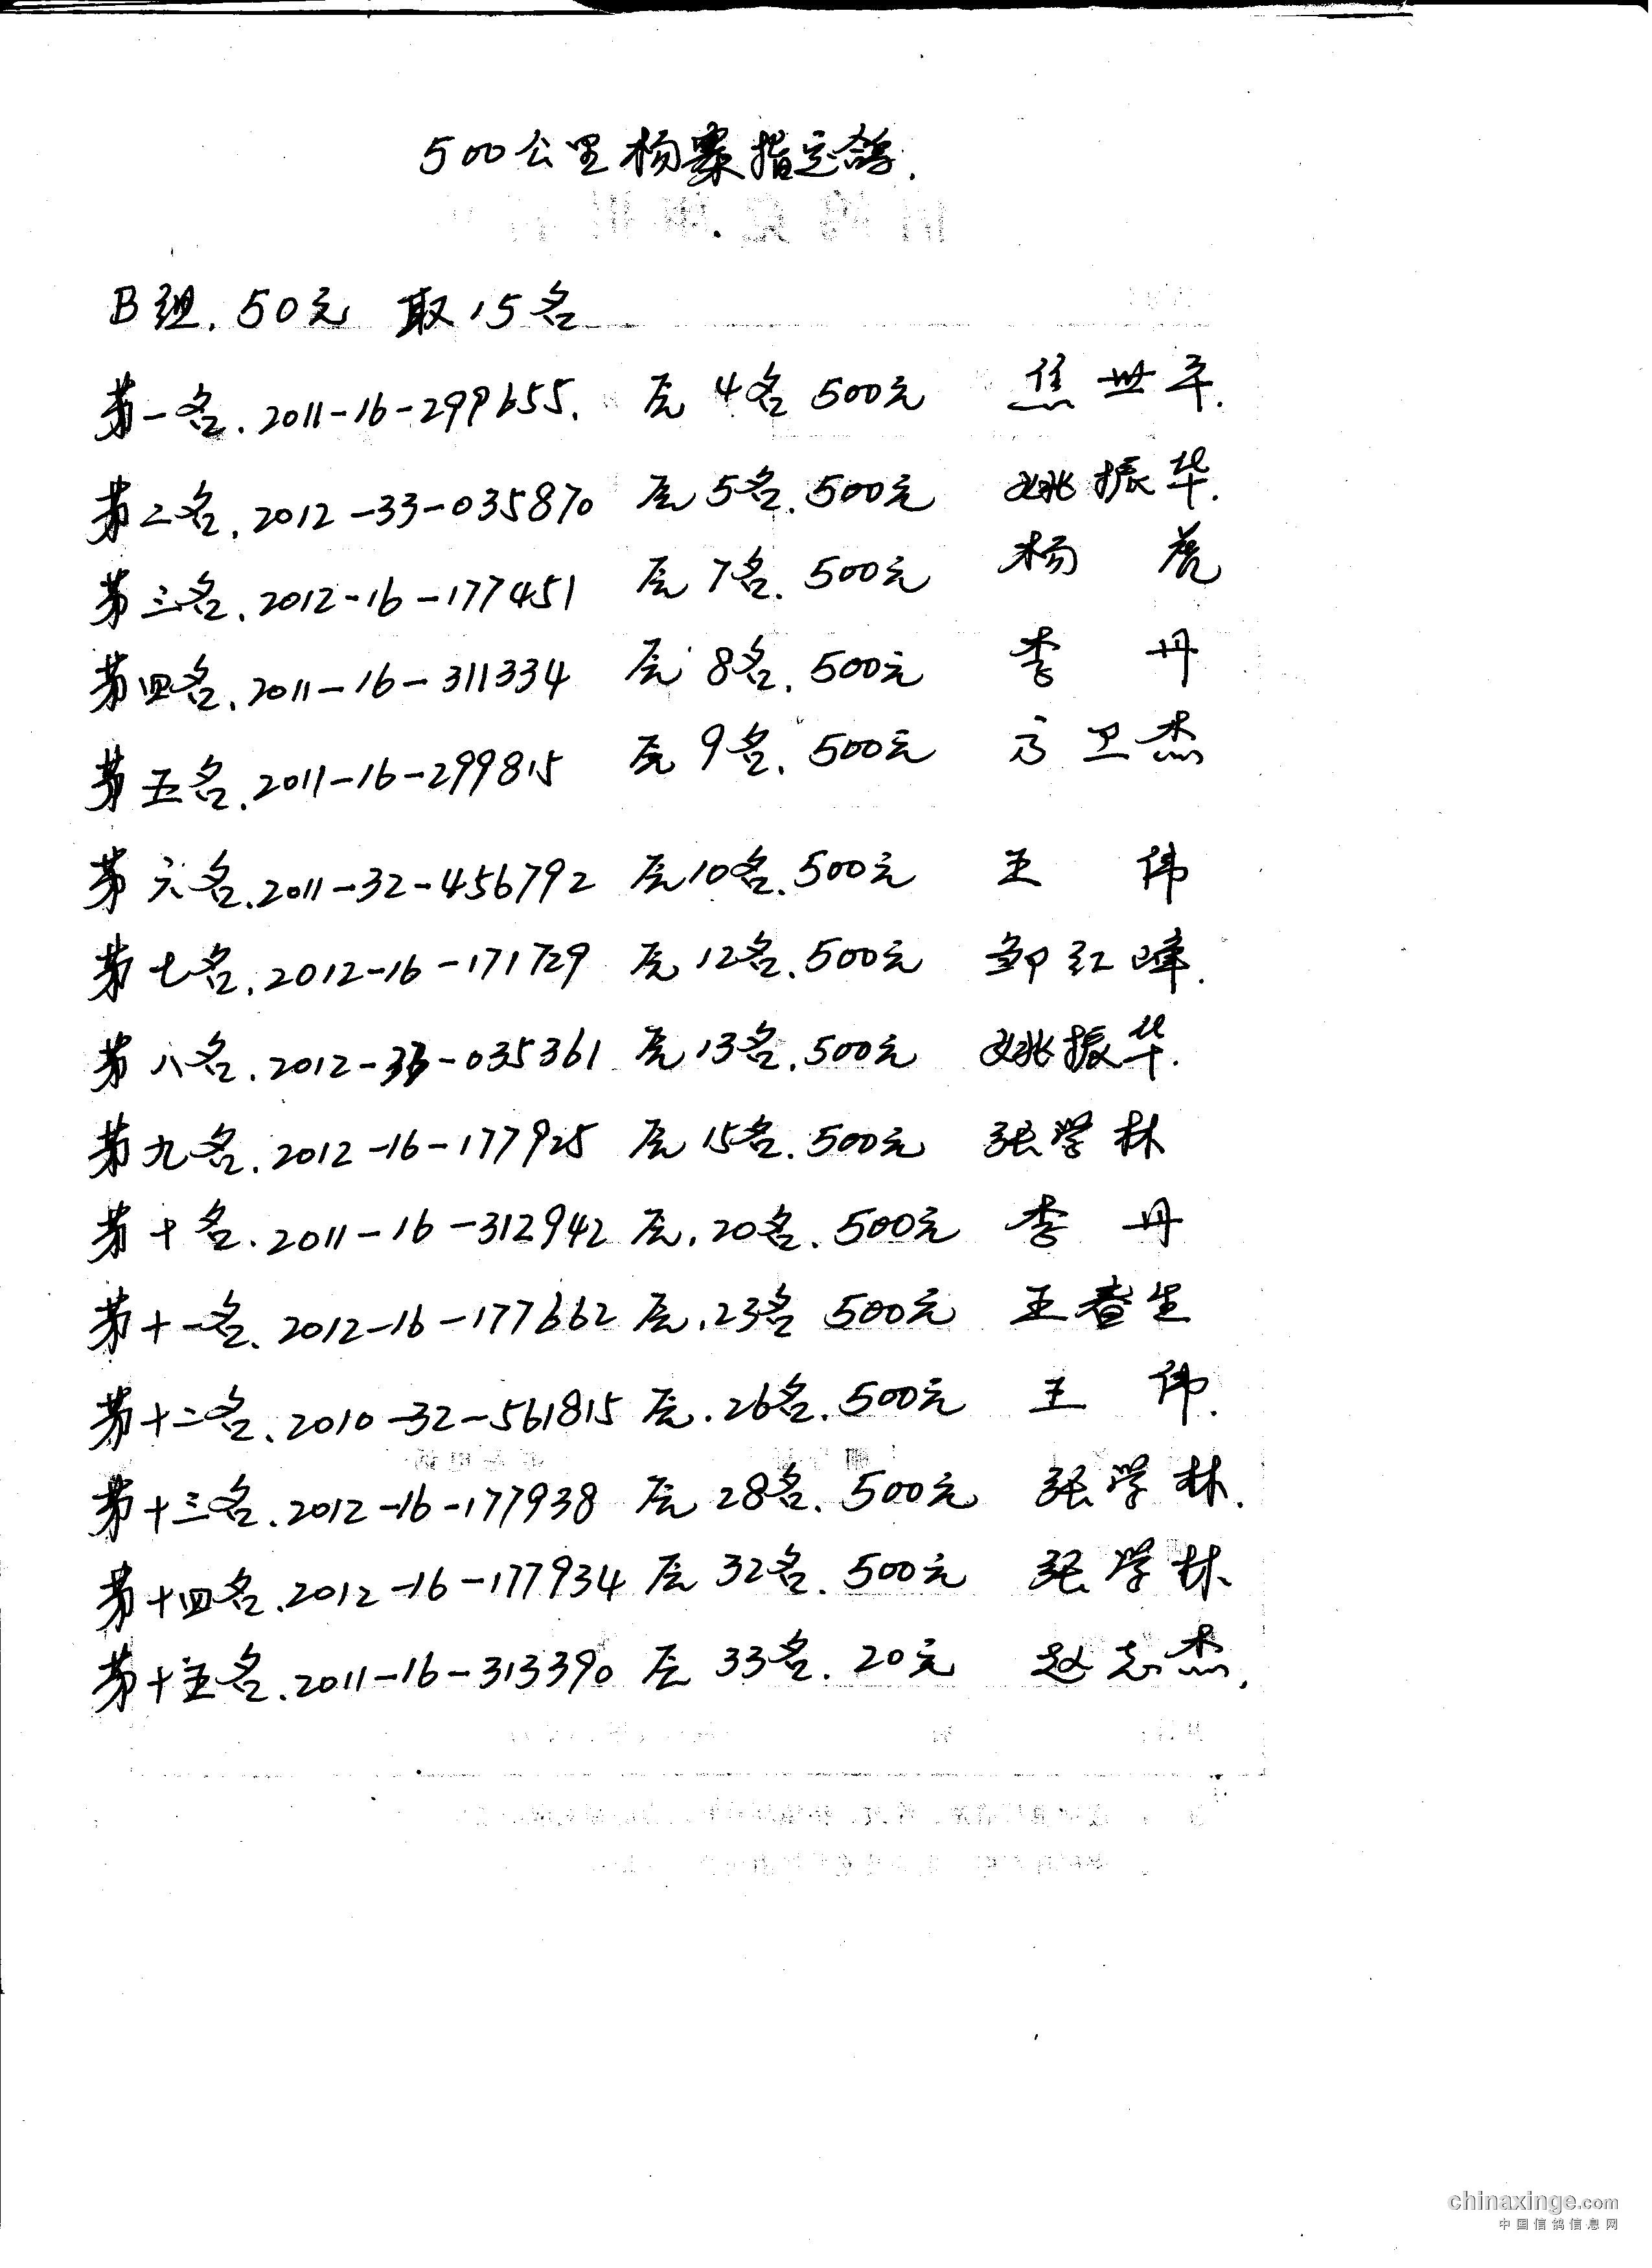 500公里杨寨指定鸽.
B组.50元 取15名
第一名.2011-16-299655. 原4名 500元 焦世平.
第二名.2012-33-035870 原5名.500元 姚振华.
第三名.2012-16-177451 原7名.500元 杨虎
第四名.2011-16-311334 原8名.500元 李丹
第五名.2011-16-299815 原9名.500元 方卫杰
第六名.2011-32-456792 原10名.500元 王伟
第七名.2012-16-171729 原12名.500元 邹红峰.
第八名.2012-33-035361 原13名.500元 姚振华.
第九名.2012-16-177925 原15名.500元 张学林
第十名.2011-16-312942 原.20名.500元 李丹
第十一名.2012-16-177662 原.23名 500元 王春生
第十二名.2010-32-561815 原.26名.500元 王伟.
第十三名.2012-16-177938 原28名.500元 张学林.
第十四名.2012-16-177934 原32名.500元 张学林.
第十五名.2011-16-313390 原33名.20元 赵志杰.
chinaxinge.com
中国信鸽信息网